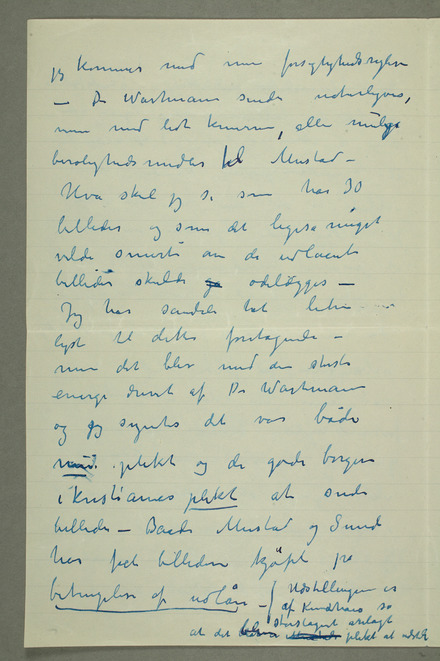 jeg kommer med min forsigtighedsregler
— Dr Wartmann sender naturligvis,
men med lidt knurren, alle mulige
beroligheds midler til Mustad —
Hva skal jeg si som har 30
billeder og som det ligesa meget
vilde smerte om de udlaante
billeder skulde odelægges —
Jeg har sandelig hat liten
lyst til dette foretagende —
men det blev med den største
energi drevet af Dr Wartmann
og jeg syntes det var både
plikt og de gode borgere
i Kristianias plikt at sende
billeder — Baade Mustad og Sund
har fået billeder kjøpt på
betingelse af udlån —
Udstillingen er
af Kunsthaus så
storslagent anlagt
at det plikt at